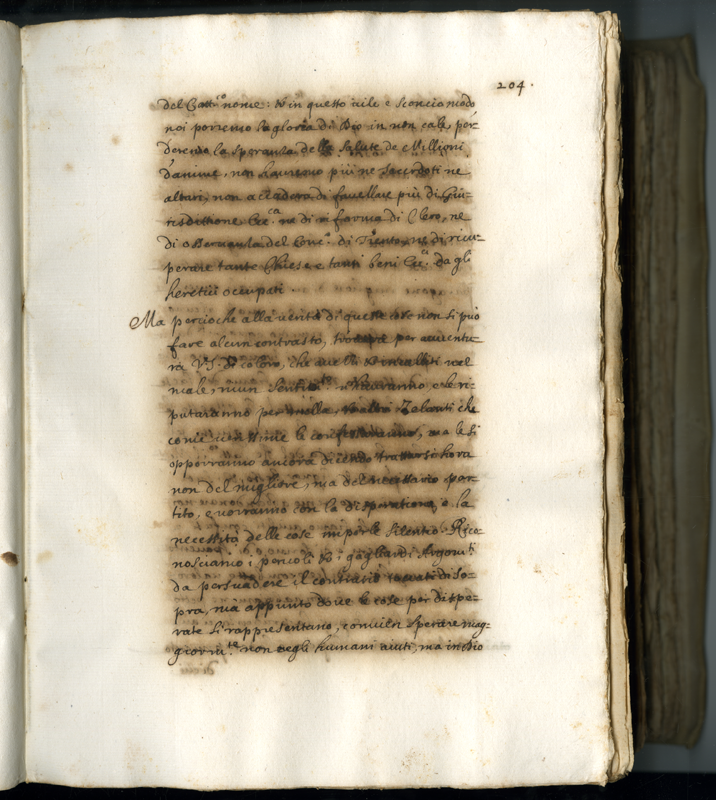 204.
del Catt.º nome: & in questo vile e sconcio modo
noi porremo la gloria di Dio in non cale, per-
derendo la speranza della salute de Millioni
d'anime, non havremo più ne sacerdoti ne
altari, non accaderà di favellare più di Giu-
risdittione Ecc.ca ne di riforma di Clero, ne
di osservanza del Conc.º di Trento, ne di ricu-
perare tante Chiese e tanti beni Ecc.ci da gli
heretici occupati
Ma percioche alla verità di queste cose non si può
fare alcun contrasto, trovare per avventu-
ra V.S. di coloro, che &incalliti nel
male, niun sentim.to n'havranno, e le ri-
putaranno per nulla, & altri Zelanti che
come verissime le confessaranno, ma le si
opporranno ancora dicendo trattarsi hora
non del migliore, ma del necessario par-
tito, e vorranno con la disperatione, e la
necessità delle cose imporle silentio. Rico-
nosciamo i pericoli & i gagliardi Argom.ti
da persuadere il contrario recati di so-
pra, ma appunto dove le cose per dispe-
rate si rappresentano, convien sperare mag-
giorm.te non negli humani aiuti, ma in Dio